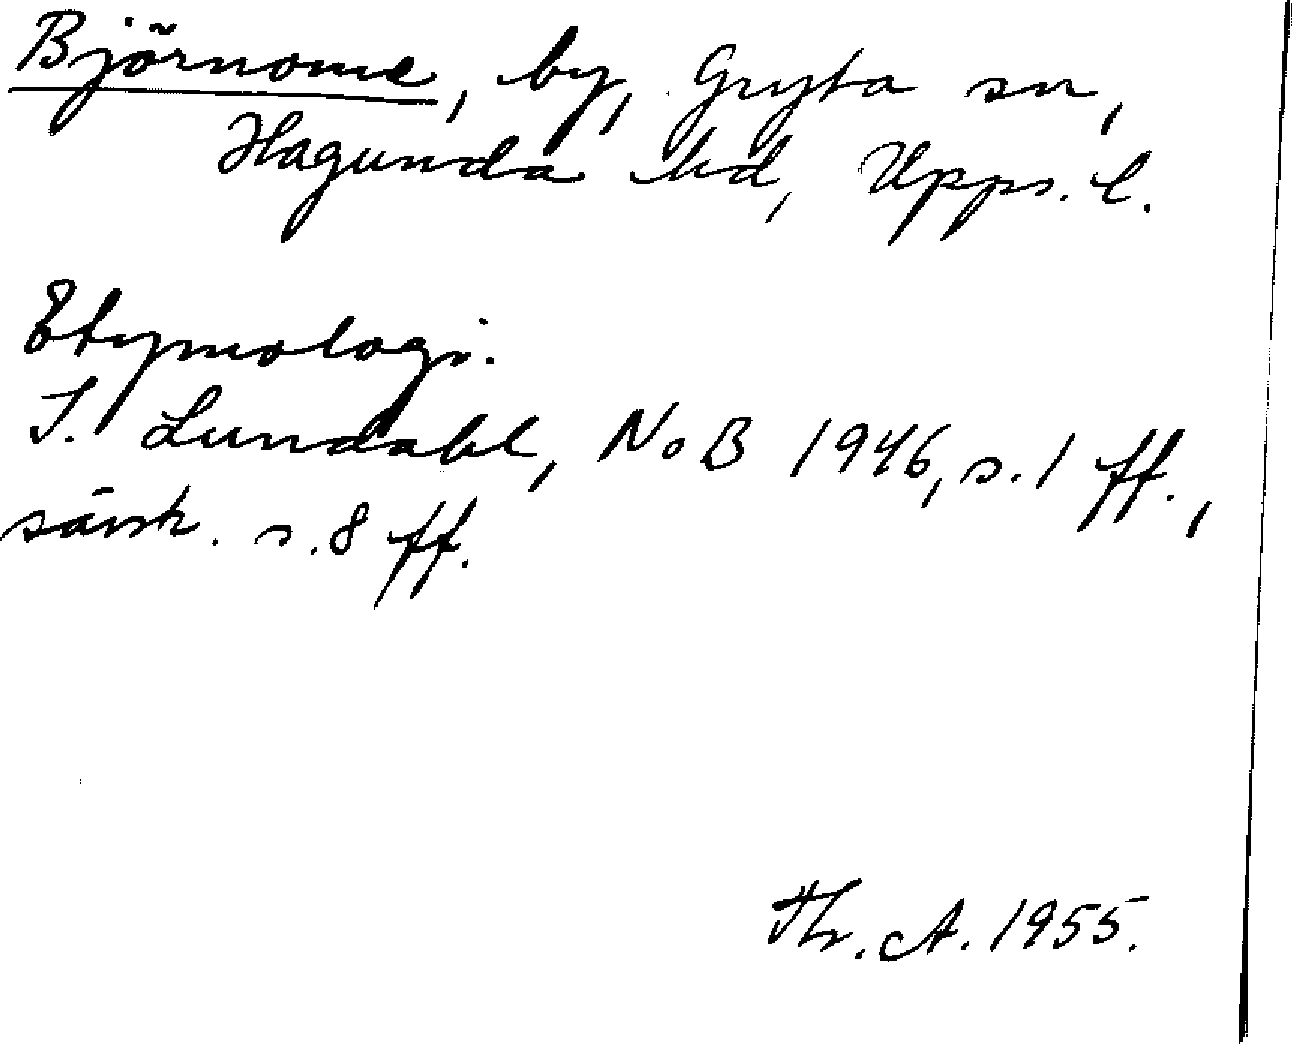 Björnome, by, Gryta sn,
Hagunda hd, Upps. l.
Etymologi.
I. Lundahl, NoB 1946, s. 1 ff.,
särsk. s. 8 ff.
Thr. A. 1955.